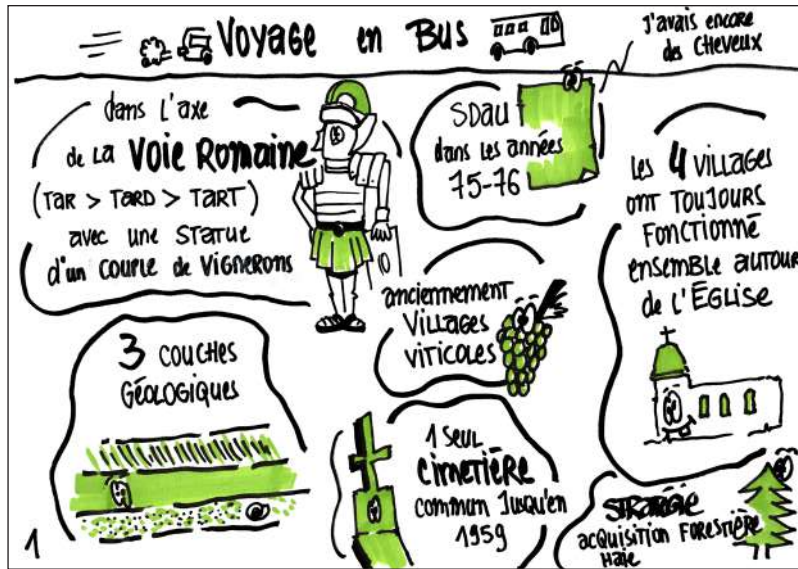 Voyage en Bus
J'avais encore
des CHEVEUX
dans L'axe
de LA Voie Romaine
(TAR > TARD > TART)
avec une STATUE
d'un COUPLE de VIGNERONS
SDAU
dans les années
75-76
Les 4 VILLAGES
ONT TOUJOURS
FONCTIONNÉ
ensemble AUTOUR
de L'EGLISE
anciennement
VILLAGES
VITICOLES
3 COUCHES
GÉOLOGIQUES
1 seul
cimetière
commun Jusqu'en
1959
STRATÉGIE
acquisition FORESTIÈRE
Haie
1